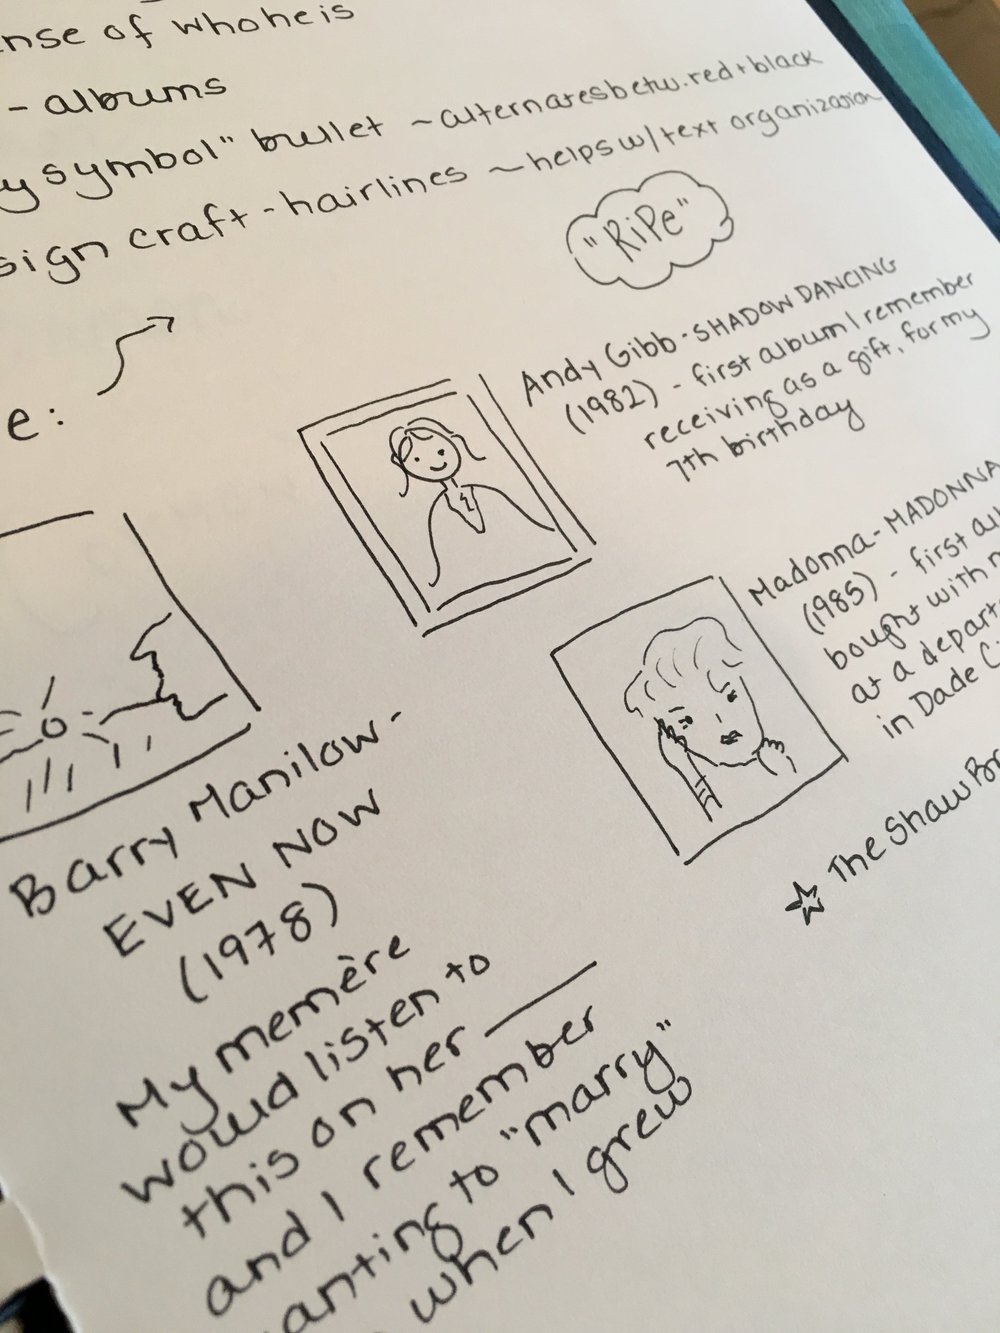 ense of who he is
- albums
y symbol" bullet ~alternates betw. red + black
sign craft - hairlines ~ helps w/ text organization
"RiPe"
e:
Andy Gibb - SHADOW DANCING
(1982) - first album I remember
receiving as a gift, for my
7th birthday
Madonna - MADONNA
(1985) - first al
bought with m
at a depart
in Dade Ci
☆ The Shaw Br
Barry Manilow -
EVEN NOW
(1978)
My memère
would listen to
this on her ____
and I remember
anting to "marry"
when I grew